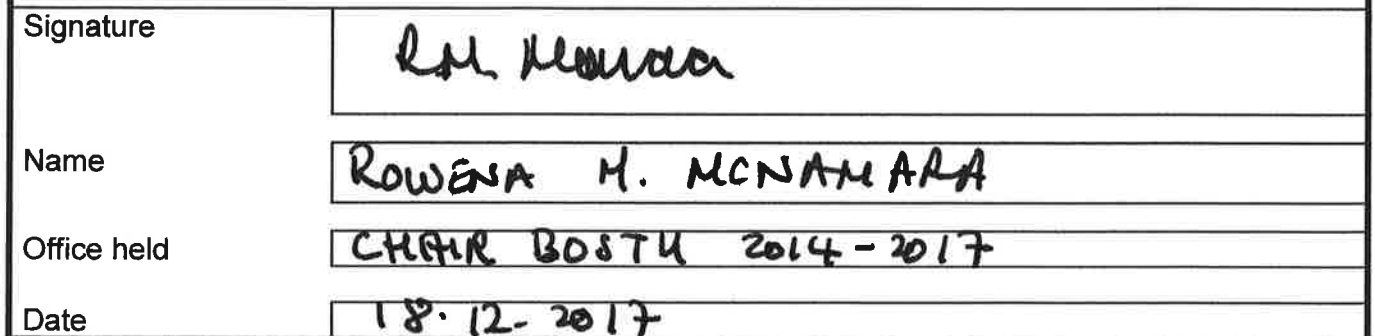 Signature
Name ROWENA M. MCNAMARA
Office held CHAIR BOSTU 2014-2017
Date 18.12-2017